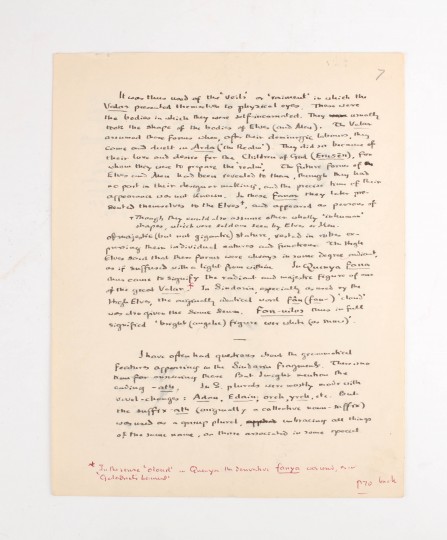 7
It was thus used of the 'veils' or 'raiment' in which the
Valar presented themselves to physical eyes. These were
the bodies in which they were self-incarnated. They usually
took the shape of the bodies of Elves (and Men). The Valar
assumed these forms when, after their demiurgic labours, they
came and dwelt in Arda ('the Realm'). They did so because of
their love and desire for the Children of God (Erusēn), for
whom they were to prepare the 'realm'. The future forms of
Elves and Men had been revealed to them, though they had
no part in their design or making, and the precise time of their
appearance was not known. In these fanar they later pre-
sented themselves to the Elves†, and appeared as persons of
†Though they could also assume other wholly 'inhuman'
shapes, which were seldom seen by Elves or Men.
of majestic (but not gigantic) stature, vested in robes ex-
pressing their individual natures and functions. The High
Elves said that these forms were always in some degree radiant,
as if suffused with a light from within. In Quenya fana
thus came to signify the radiant and majestic figure of one
of the great Valar.* In Sindarin, especially as used by the
High Elves, the originally identical word fân (fan-) 'cloud'
was also given the same sense. Fan-uilos thus in full
signified 'bright (angelic) figure ever white (as snow)'.
I have often had questions about the grammatical
features appearing in the Sindarin fragments. There is no
room for answering these. But I might mention the
ending -ath. In S. plurals were mostly made with
vowel-changes: Adan, Edain; orch, yrch, etc. But
the suffix -ath (originally a collective noun-suffix)
was used as a group plural, embracing all things
of the same name, or those associated in some special
* In the sense 'cloud' in Quenya the derivative fanya was used, see
'Galadriel's Lament'
pto back